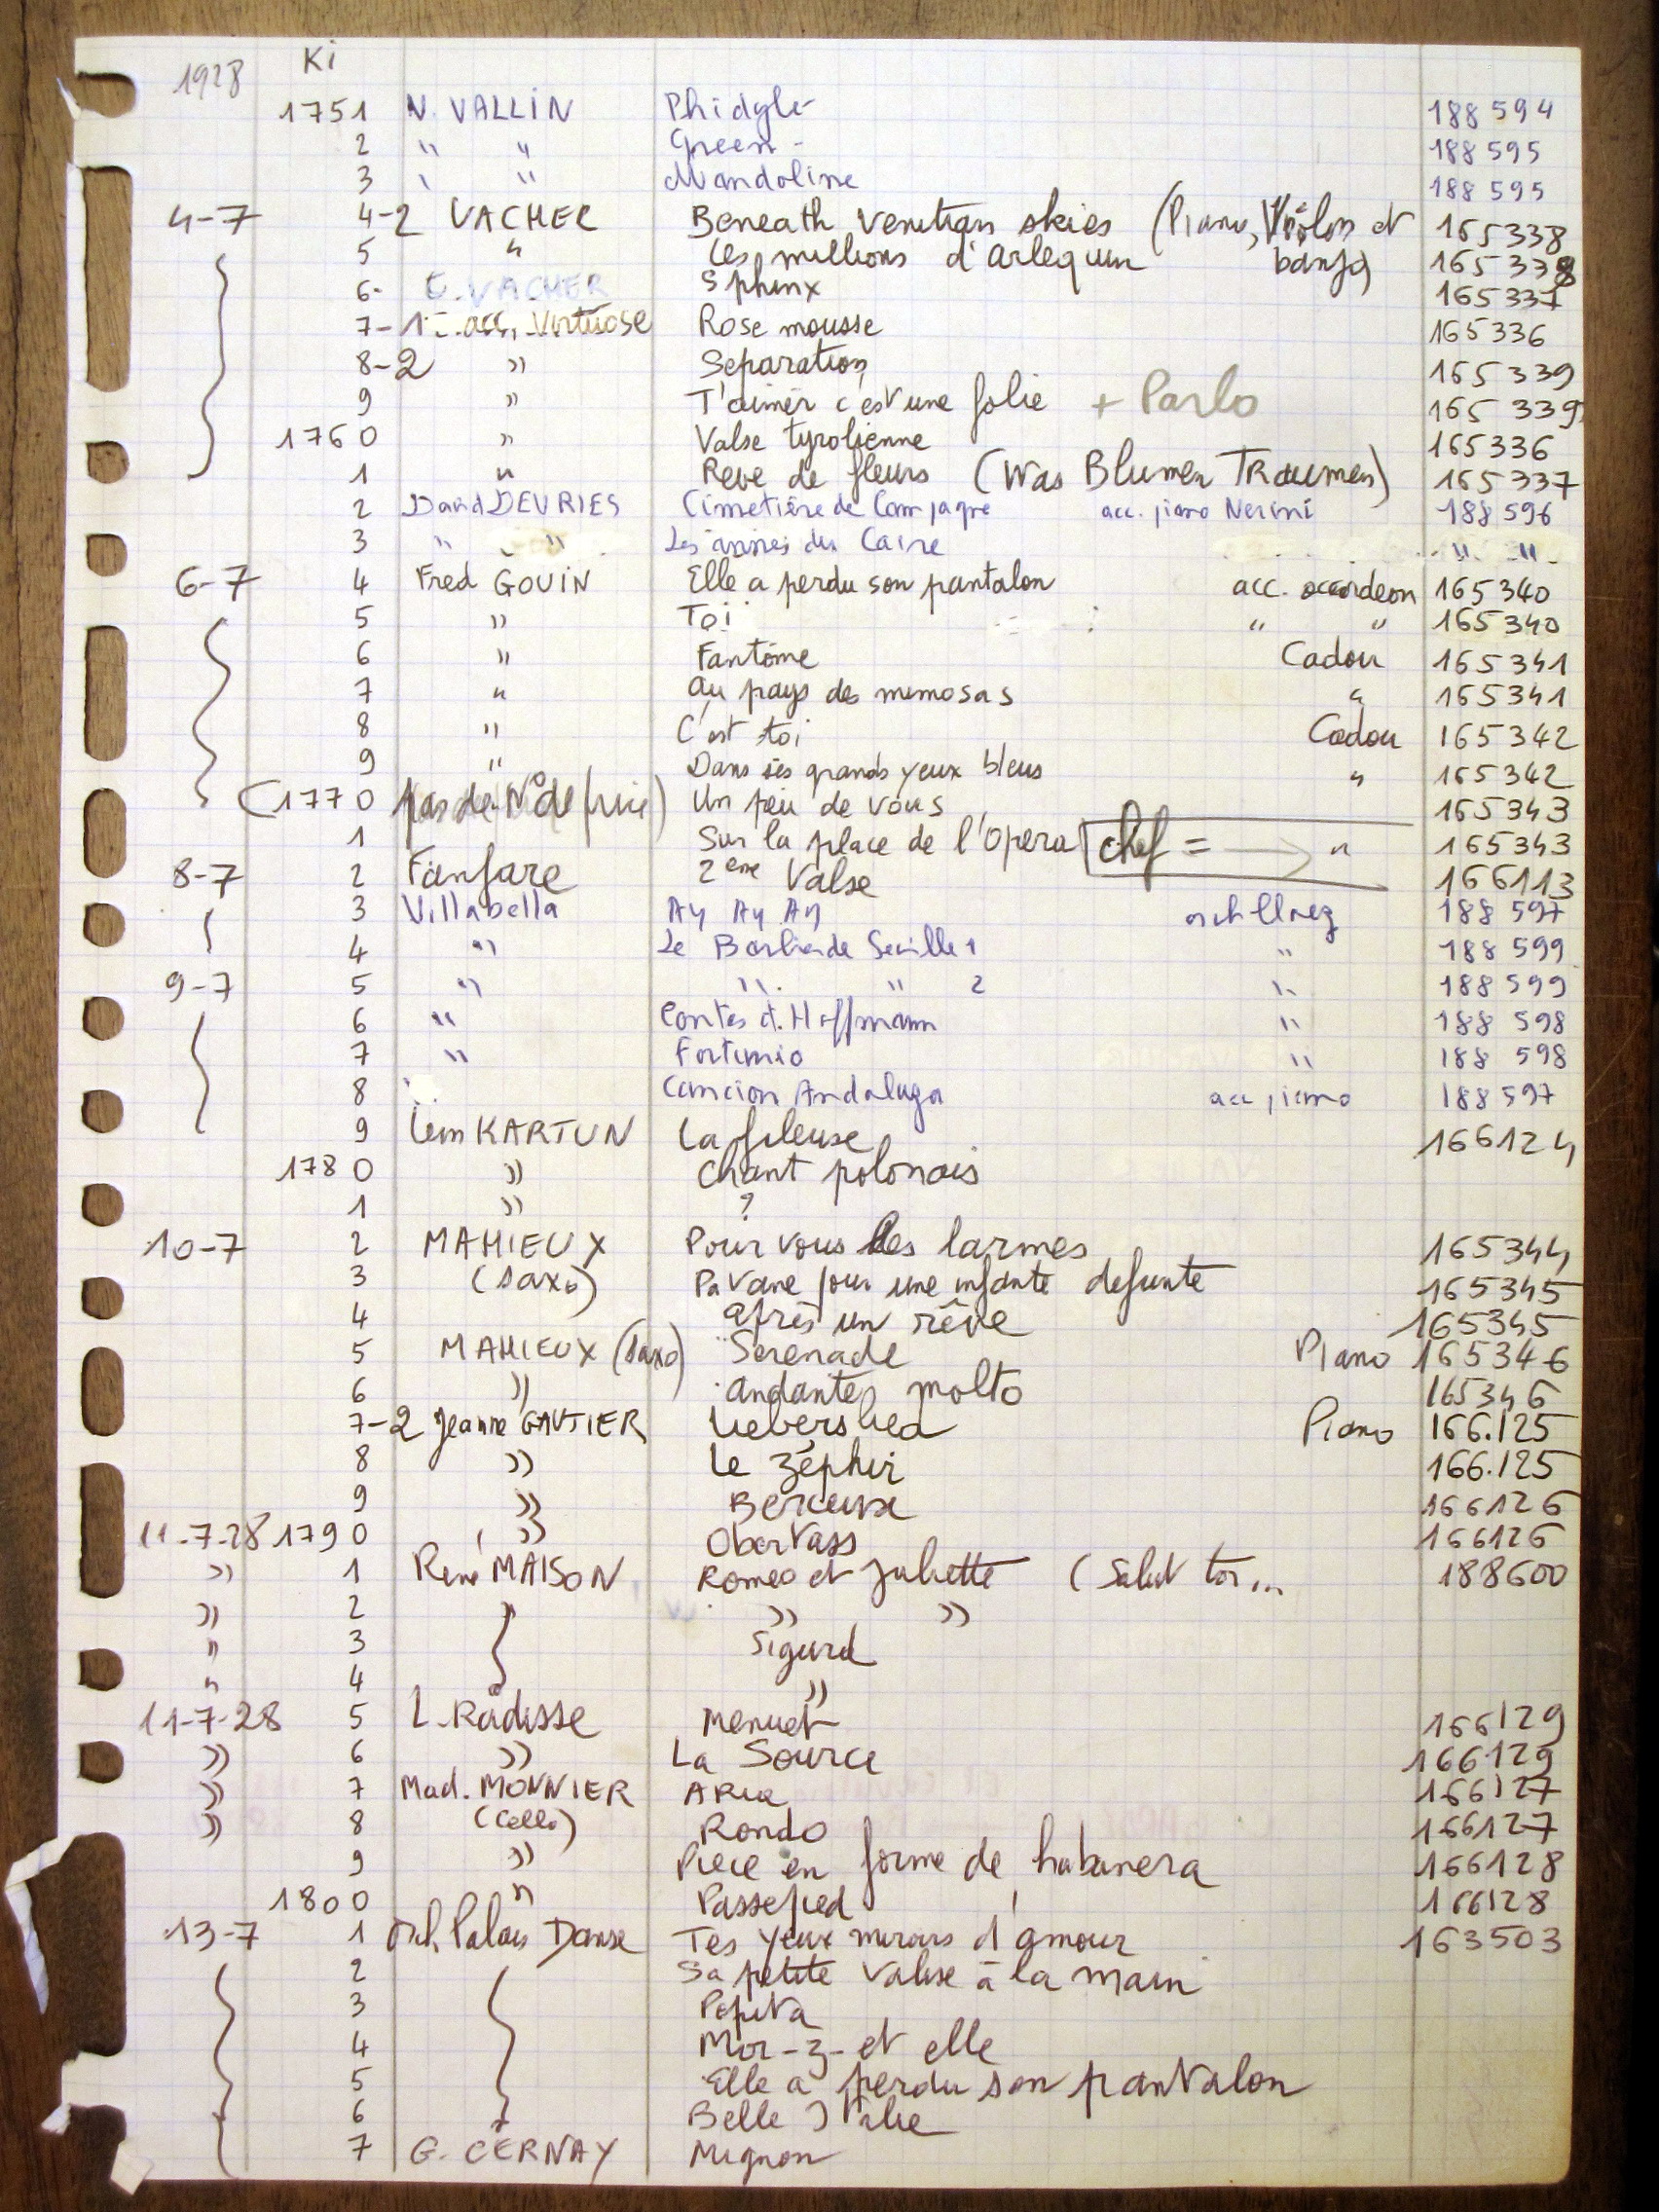 1928 Ki
1751 N. VALLIN Phidylé 188594
2 " " Green - 188595
3 " " Mandoline 188595
4-7 4-2 VACHER Beneath Venetian skies (Piano, Violon et 165338
5 " Les millions d'arlequin banjo) 165338
6- E. VACHER Sphinx 165337
7-1 acc. Virtuose Rose mousse 165336
8-2 " Separation 165339
9 " T'aimer c'est une folie + Parlo 165339
1760 " Valse tyrolienne 165336
1 " Reve de fleurs (Was Blumen Traumen) 165337
2 David DEVRIES Cimetière de Campagne acc. piano Nerini 188596
3 " " Les aniers du Caire " "
6-7 4 Fred GOUIN Elle a perdu son pantalon acc. accordeon 165340
5 " Toi " " 165340
6 " Fantôme Cadou 165341
7 " au pays des mimosas " 165341
8 " C'est toi Cadou 165342
9 " Dans ses grands yeux bleus " 165342
(1770 pas de N° de prise) Un peu de vous 165343
1 Sur la place de l'Opera chef = → " 165343
8-7 2 Fanfare 2eme Valse 166113
3 Villabella Ay Ay Ay orch Cloez 188597
4 " Le Barbier de Seville 1 " 188599
9-7 5 " " " 2 " 188599
6 " Contes d'Hoffmann " 188598
7 " Fortunio " 188598
8 " Cancion Andaluza acc piano 188597
9 Léon KARTUN La fileuse 166124
1780 " Chant polonais
1 " ?
10-7 2 MAHIEUX Pour vous les larmes 165344
3 (saxo) Pavane pour une infante defunte 165345
4 après un rêve 165345
5 MAHIEUX (saxo) Serenade Piano 165346
6 " andante molto 165346
7-2 Jeanne GAUTIER Liebeslied Piano 166.125
8 " Le zéphir 166.125
9 " Berceuse 166126
11-7-28 1790 " Obertass 166126
" 1 René MAISON Romeo et Juliette (Salut toi... 188600
" 2 " " "
" 3 Sigurd
" 4 "
11-7-28 5 L. Radisse Menuet 166129
" 6 " La Source 166129
" 7 Mad. MONNIER ARia 166127
" 8 (Cello) Rondo 166127
9 " Piece en forme de habanera 166128
1800 " Passepied 166128
13-7 1 Orch Palais Danse Tes yeux miroirs d'amour 163503
2 Sa petite valise à la main
3 Pepita
4 Moi-z-et elle
5 Elle a perdu son pantalon
6 Belle Italie
7 G. CERNAY Mignon